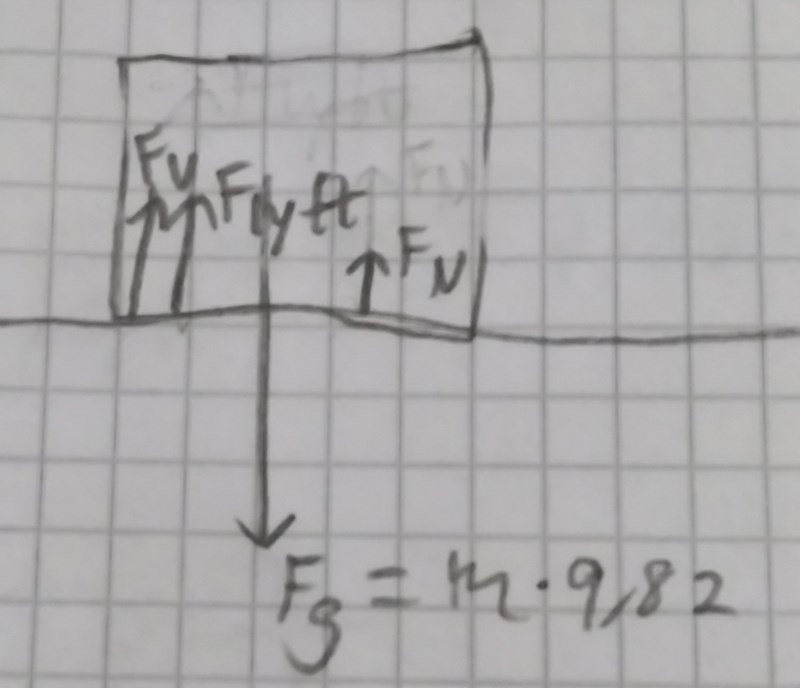 Fv Flyft
FN
Fg = m · 9,82